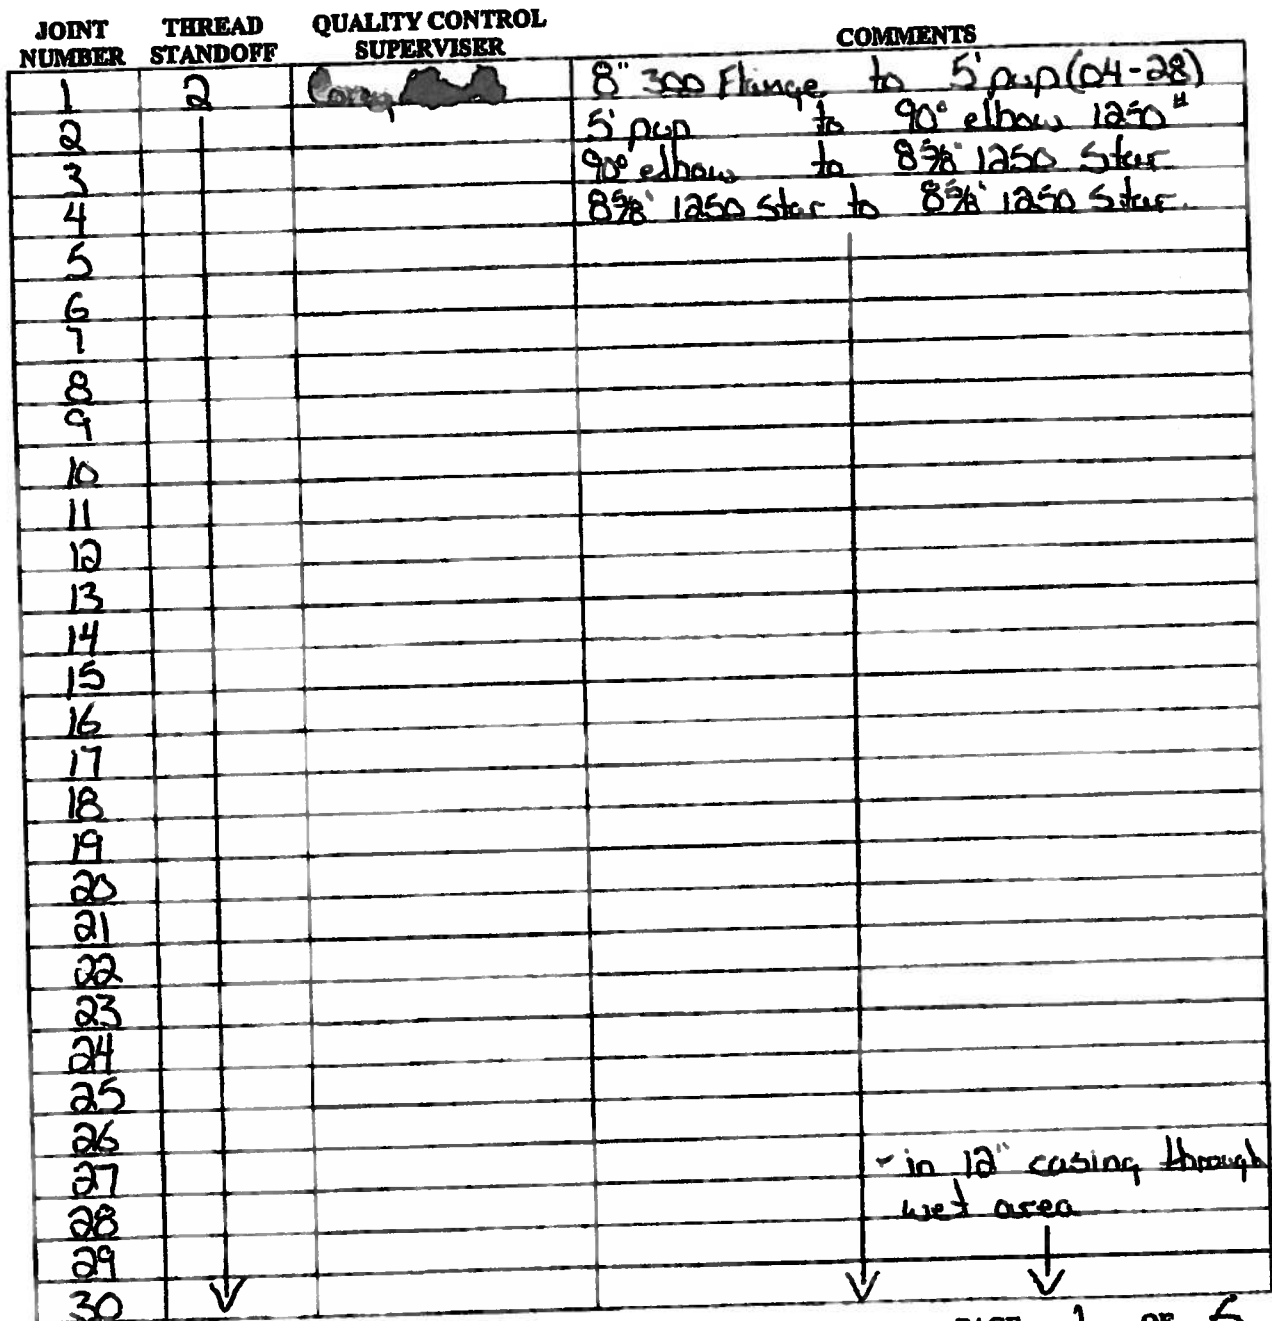 JOINT NUMBER THREAD STANDOFF QUALITY CONTROL SUPERVISER COMMENTS
1 2 8" 300 Flange to 5' pup (04-28)
2 5' pup to 90° elbow 1250#
3 90° elbow to 8 5/8" 1250 Star
4 8 5/8" 1250 Star to 8 5/8" 1250 Star.
5
6
7
8
9
10
11
12
13
14
15
16
17
18
19
20
21
22
23
24
25
26
27 - in 12" casing through
28 wet area
29
30
PAGE 1 OF 5